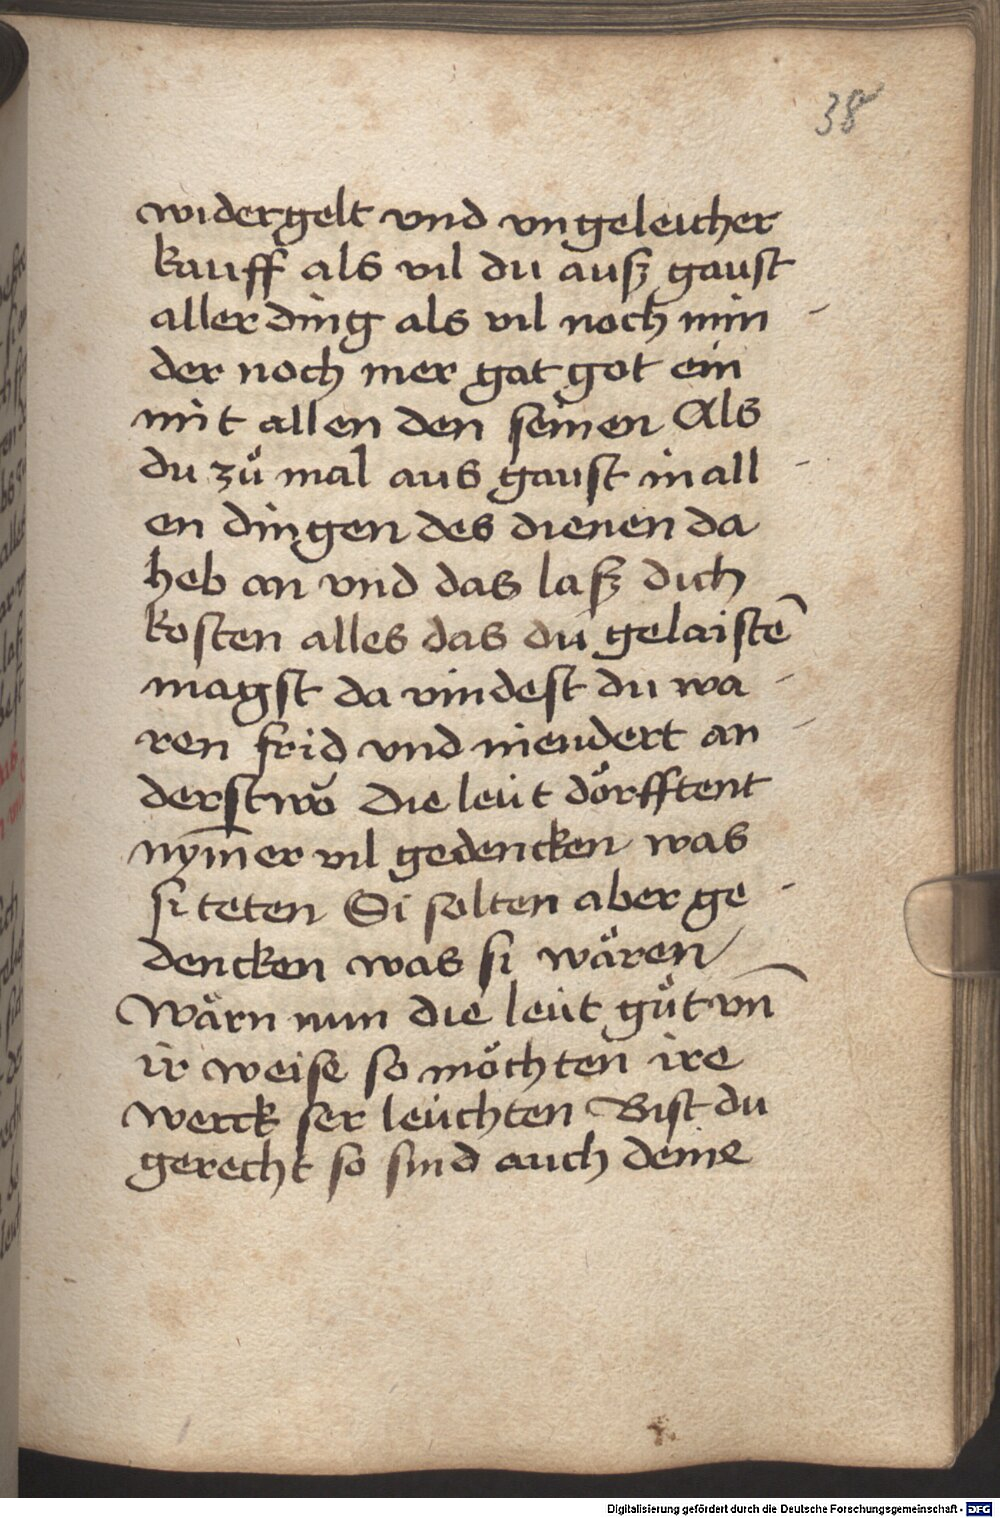 38
widergelt vnd vngeleicher
kauff als vil du auß gaust
aller ding als vil noch min -
der noch mer gat got ein
mit allen den seinen Als
du zů mal aus gaust in all -
en dingen des dienen da
heb an vnd das laß dich
kosten alles das du gelaistē
magst da vindest du wa -
ren frid vnd niendert an -
derstwo Die leüt dörfftent
nym̄er vil gedencken was
si teten Si solten aber ge -
dencken was si wären
Wärn nun die leüt gůt vn̄
ir weise so möchten ire
werck ser leüchten Bist du
gerecht so sind auch deine
Digitalisierung gefördert durch die Deutsche Forschungsgemeinschaft - DFG